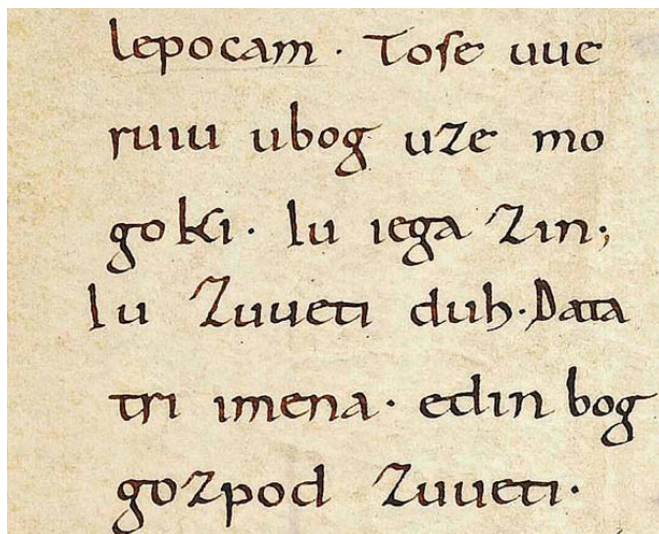 lepocam · Tose uue
ruiu ubog uze mo
goki · lu iega zin;
lu zuueti duh · Data
tri imena · edin bog
gozpod zuueti ·